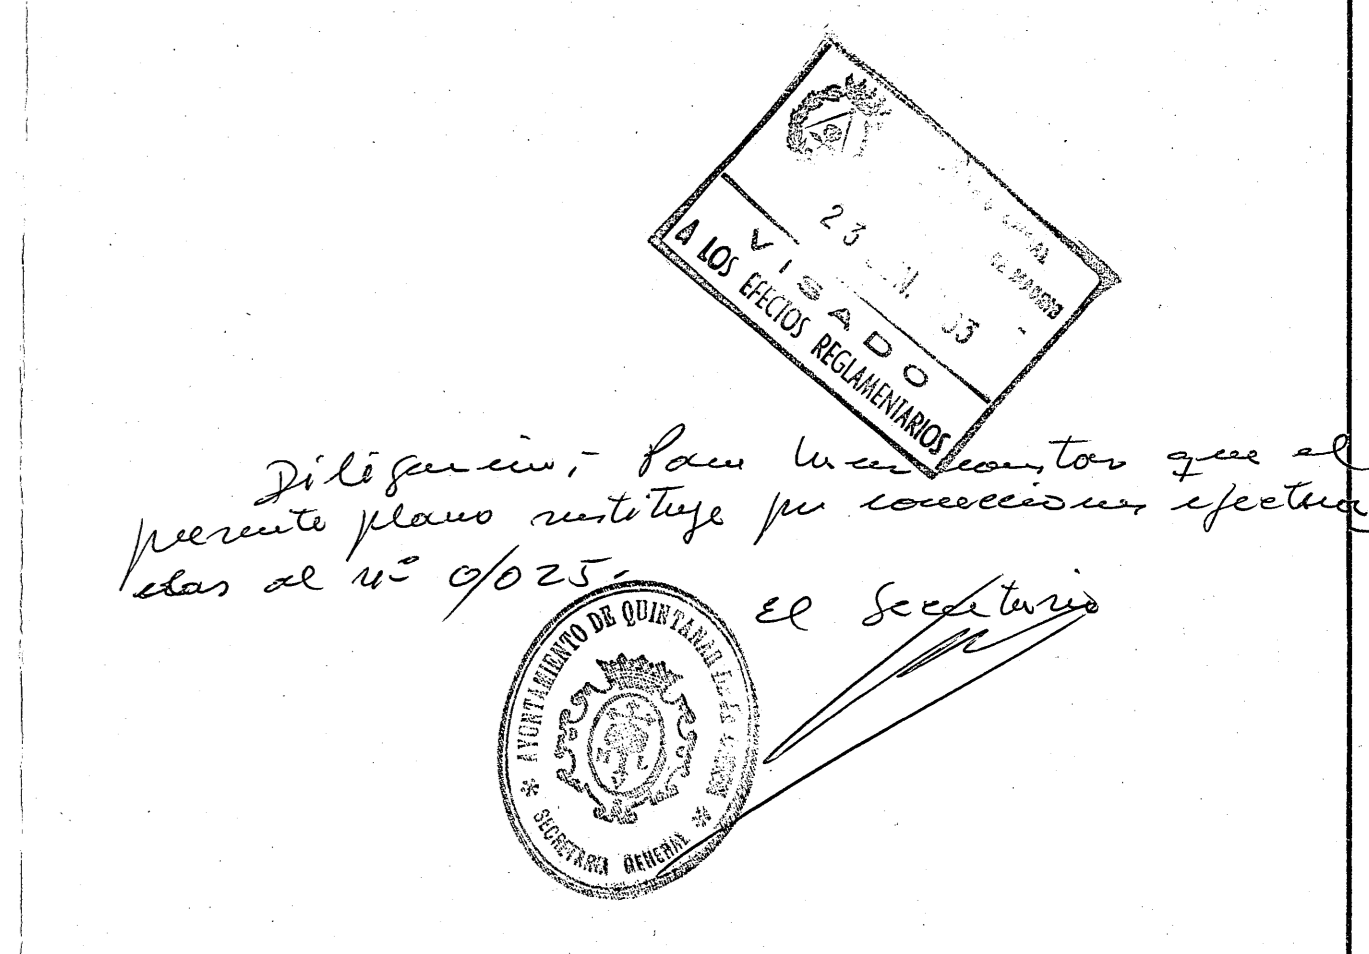 23
VISADO
A LOS EFECTOS REGLAMENTARIOS
Diligencia;- Para hacer constar que el
presente plano sustituye por correcciones efectua
das al nº 0/025.
El Secretario
AYUNTAMIENTO DE QUINTANAR DE LA ORDEN
SECRETARIA GENERAL